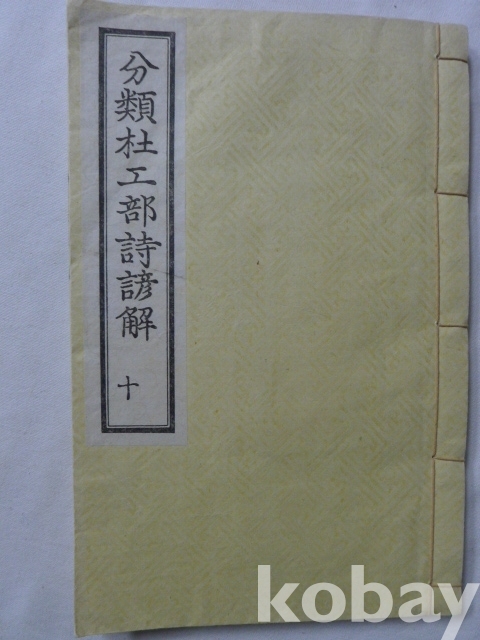 分類杜工部詩諺解
十
kobay